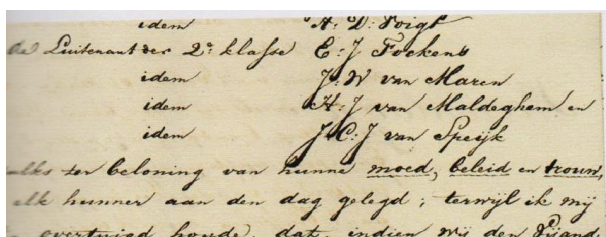 idem A: D: Voigt
de Luitenant der 2e klasse E: J Fockens
idem J: W van Maren
idem H: J van Maldeghem en
idem J. C: J van Speijk
elks ter beloning van hunne moed, beleid en trouw,
elk hunner aan den dag gelegd; terwijl ik mij
overtuigd houde, dat, indien wij den Vijand